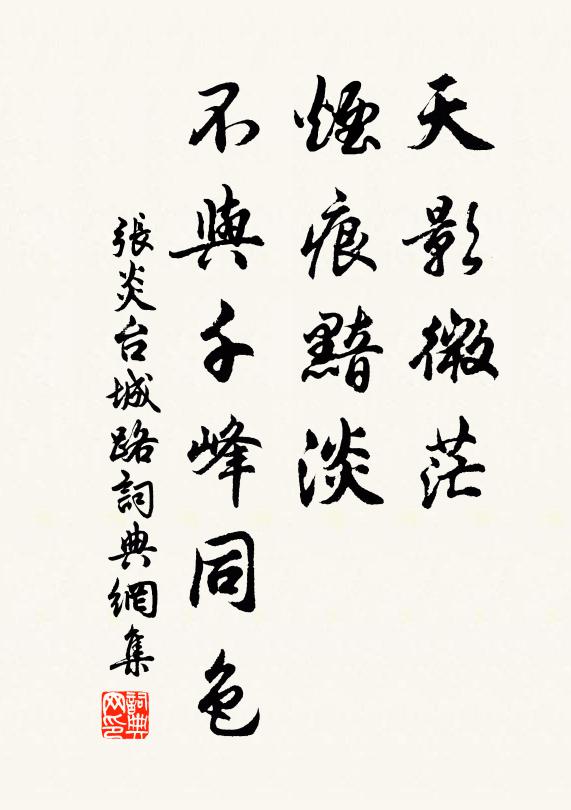 天影微茫
煙痕黯淡
不與千峰同色
張炎台城路詞典網集
詞典網印